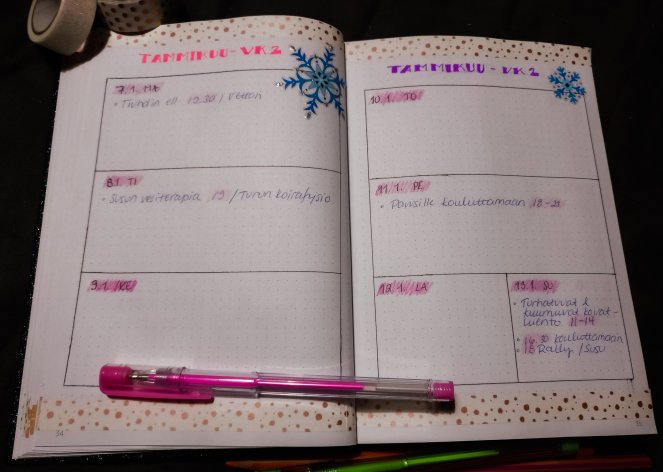 TAMMIKUU - VK 2
7.1. MA
8.1. TI
• Susun vesiterapia 19 / Turun koirafysio
9.1. KE
34
TAMMIKUU - VK 2
10.1. TO
11.1. PE
• Pawsille kouluttamaan 18-21
12.1. LA
13.1. SU
• Turhautuvat &
kuumuvat koirat-
luento 11-14
• 16.30 kouluttamaan
• 18 Rally / Susu
35